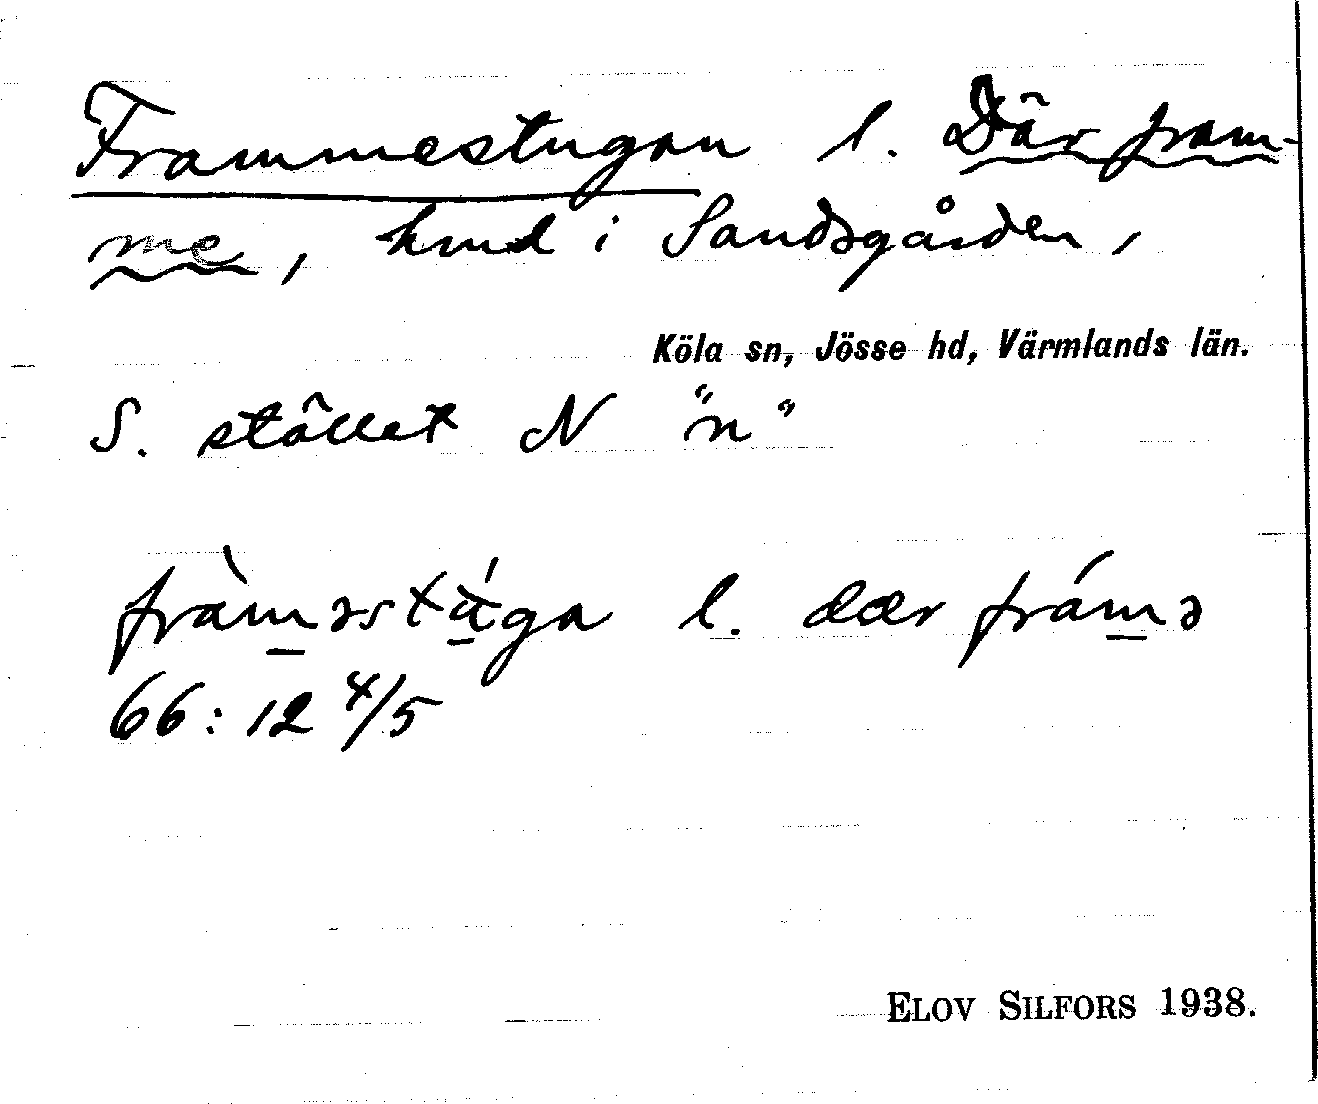 Frammestugan l. Där fram-
me, hmd i Sandsgården,
Köla sn, Jösse hd, Värmlands län.
S. stället N "n"
fràm̲əstá̲ga l. dær frám̲ə
66:12 4/5
ELOV SILFORS 1938.